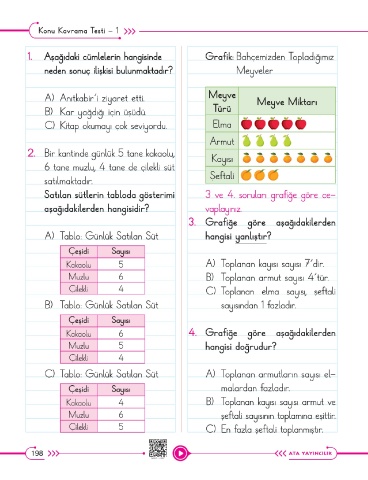 Konu Kavrama Testi – 1
1. Aşağıdaki cümlelerin hangisinde
neden sonuç ilişkisi bulunmaktadır?
A) Anıtkabir'i ziyaret etti.
B) Kar yağdığı için üşüdü.
C) Kitap okumayı çok seviyordu.
2. Bir kantinde günlük 5 tane kakaolu,
6 tane muzlu, 4 tane de çilekli süt
satılmaktadır.
Satılan sütlerin tabloda gösterimi
aşağıdakilerden hangisidir?
A) Tablo: Günlük Satılan Süt
Çeşidi Sayısı
Kakaolu 5
Muzlu 6
Çilekli 4
B) Tablo: Günlük Satılan Süt
Çeşidi Sayısı
Kakaolu 6
Muzlu 5
Çilekli 4
C) Tablo: Günlük Satılan Süt
Çeşidi Sayısı
Kakaolu 4
Muzlu 6
Çilekli 5
Grafik: Bahçemizden Topladığımız
Meyveler
Meyve Türü Meyve Miktarı
Elma
Armut
Kayısı
Şeftali
3 ve 4. soruları grafiğe göre ce-
vaplayınız.
3. Grafiğe göre aşağıdakilerden
hangisi yanlıştır?
A) Toplanan kayısı sayısı 7'dir.
B) Toplanan armut sayısı 4'tür.
C) Toplanan elma sayısı, şeftali
sayısından 1 fazladır.
4. Grafiğe göre aşağıdakilerden
hangisi doğrudur?
A) Toplanan armutların sayısı el-
malardan fazladır.
B) Toplanan kayısı sayısı armut ve
şeftali sayısının toplamına eşittir.
C) En fazla şeftali toplanmıştır.
198
ATA YAYINCILIK